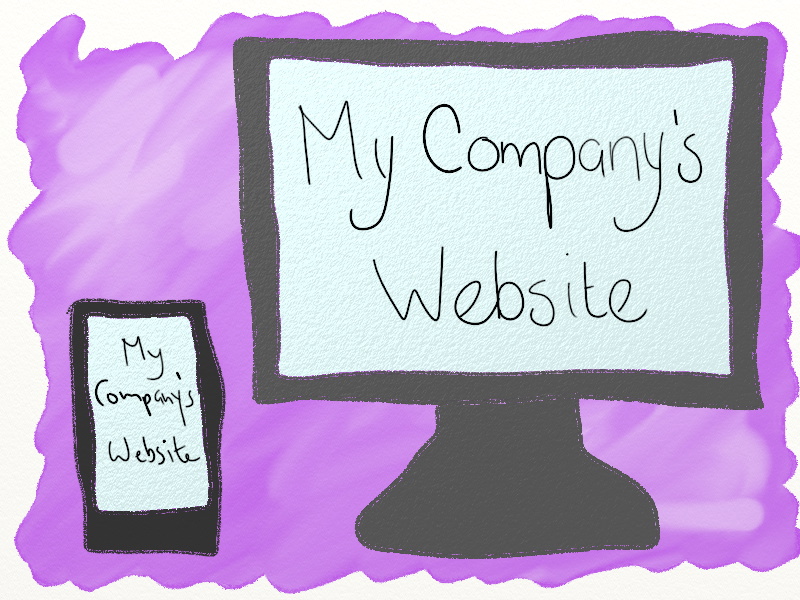 My Company's
Website
My
Company's
Website